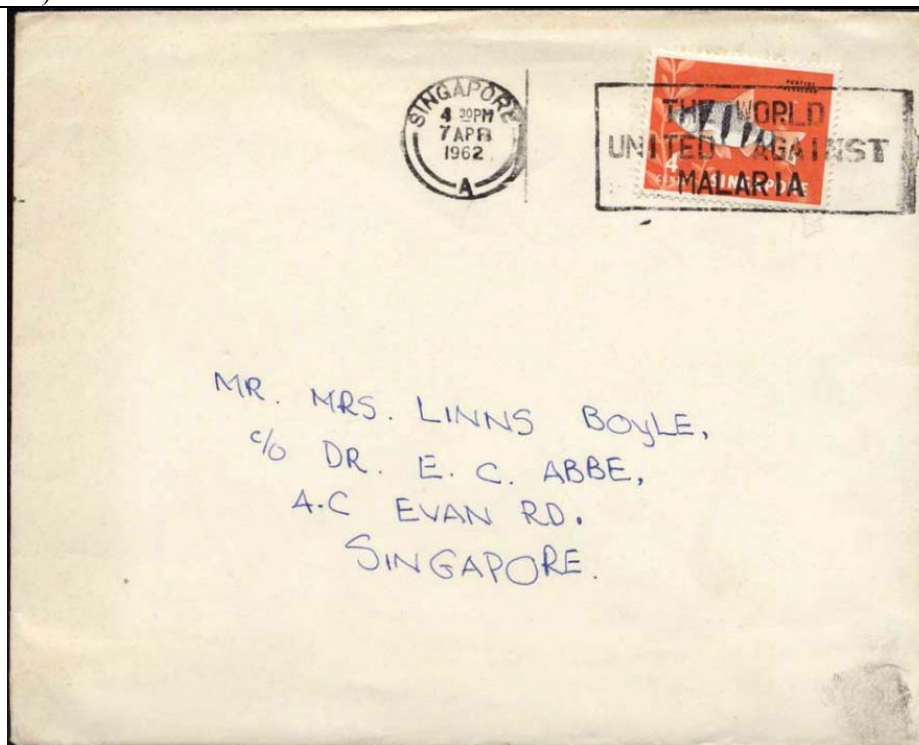 SINGAPORE
4 30PM
7 APR
1962
A
THE WORLD
UNITED AGAINST
MALARIA
4
CENTS SINGAPORE
MR. MRS. LINNS BOYLE,
c/o DR. E. C. ABBE,
4.C EVAN RD.
SINGAPORE.